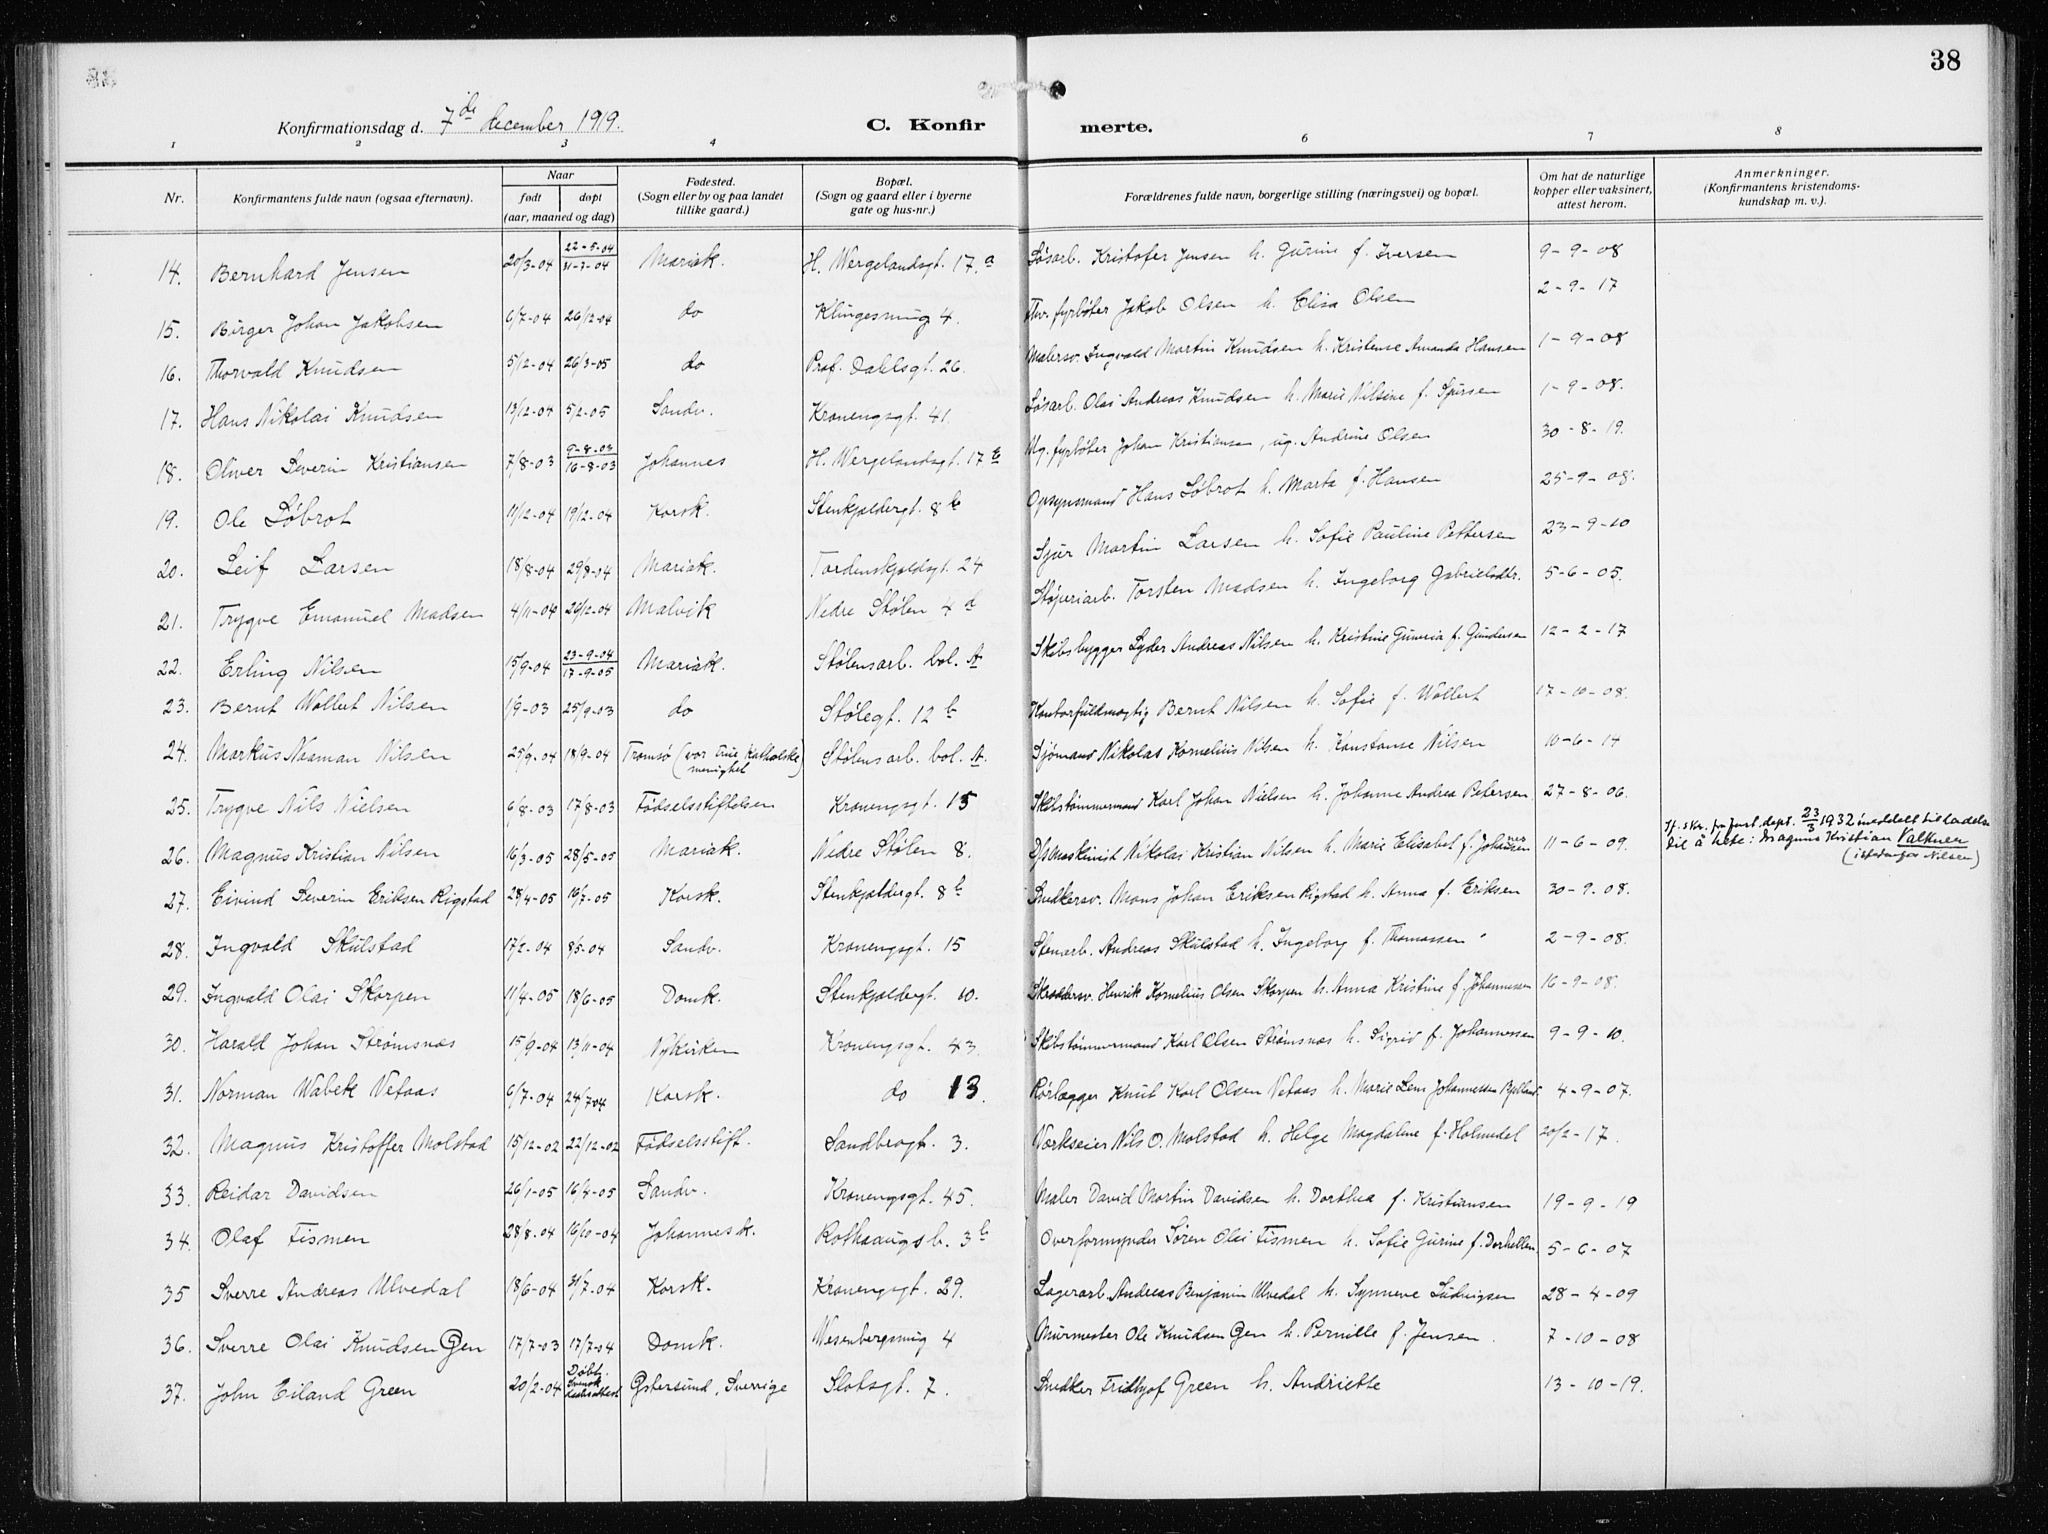 38
Konfirmationsdag d. 7de december 1919.
C. Konfirmerte.
1 2 3 4 6 7 8
Nr. | Konfirmantens fulde navn (ogsaa efternavn). | Naar født døpt (aar, maaned og dag) | Fødested. (Sogn eller by og paa landet tillike gaard.) | Bopæl. (Sogn og gaard eller i byerne gate og hus-nr.) | Forældrenes fulde navn, borgerlige stilling (næringsvei) og bopæl. | Om hat de naturlige kopper eller vaksinert, attest herom. | Anmerkninger. (Konfirmantens kristendoms-kundskap m. v.).
14. Bernhard Jensen 20/3-04 22-5-04 31-7-04 Mariak. H. Wergelandsgt. 17.a Løsarb. Kristofer Jensen h. Gurine f. Iversen 9-9-08
15. Birger Johan Jakobsen 6/7-04 26/12-04 do Klingesmug 4. Thv. fyrbøter Jakob Olsen h. Elisa Olsen 2-9-17
16. Thorvald Knudsen 5/12-04 26/3-05 do Prof. Dahlsgt. 26. Malersv. Ingvald Martin Knudsen h. Kristense Amanda Hansen 1-9-08
17. Hans Nikolai Knudsen 13/12-04 5/2-05 Sandv. Kronengsgt. 41. Løsarb. Olai Andreas Knudsen h. Marie Nilsine f. Sjursen 1-9-08.
18. Oliver Severin Kristiansen 7/8-03 9-8-03 16-8-03 Johannes H. Wergelandsgt. 17 E Ug. fyrbøter Johan Kristiansen, ug. Andrine Olsen 30-8-19.
19. Ole Løbrot 11/12-04 19/12-04 Korsk. Stenkjeldergt. 8 b Opsynsmand Hans Løbrot h. Marta f. Hansen 25-9-08.
20. Leif Larsen 18/8-04 29/8-04 Mariak. Tordenskjoldsgt. 24 Sjur Martin Larsen h. Sofie Pauline Pettersen 23-9-10
21. Trygve Emanuel Madsen 4/11-04 26/12-04 Malvik Nedre Stølen 4 d Støperiarb. Torsten Madsen h. Ingeborg Gabrielsdtr. 5-6-05.
22. Erling Nilsen 15/9-04 23-9-04 17-9-05 Mariak. Stølens arb. bol. A Skibsbygger Lyder Andreas Nilsen h. Kristine Guneria f. Gundersen 12-2-17
23. Bernt Wollert Nilsen 1/9-03 25/9-03 do Stølegt. 12 b Kontorfuldmægtig Bernt Nilsen h. Sofie f. Wollert 17-10-08.
24. Markus Naaman Nilsen 25/9-04 18/9-04 Tromsø (vor frue Katholske menighet) Stølens arb. bol. A. Sjømand Nikolas Kornelius Nilsen h. Konstanse Nilsen 10-6-14
25. Trygve Nils Nielsen 6/8-03 17/8-03 Fødselsstiftelsen Kronengsgt. 15 Skibstømmermand Karl Johan Nielsen h. Johanne Andrea Petersen 27-8-06.
26. Magnus Kristian Nilsen 16/3-05 28/5-05 Mariak. Nedre Stølen 8. D/S Maskinist Nikolai Kristian Nilsen h. Marie Elisabet f. Johannesen 11-6-09. If. skr. fr. Just.dept. 23/3 1932 meddelt tilladelse til å hete: Magnus Kristian Valkner (istedenfor Nilsen)
27. Eivind Severin Eriksen Rigstad 28/4-05 16/7-05 Korsk. Stenkjeldergt. 8 b Snedkersv. Mons Johan Eriksen Rigstad h. Anna f. Eriksen 30-9-08.
28. Ingvald Skulstad 17/2-04 8/5-04 Sandv. Kronengsgt. 15 Stenarb. Andreas Skulstad h. Ingeborg f. Thomassen 2-9-08.
29. Ingvald Olai Skorpen 11/4-05 18/6-05 Domk. Stenkjeldergt. 10. Skræddersv. Henrik Kornelius Olsen Skorpen h. Anna Kristine f. Johannessen 16-9-08.
30. Harald Johan Strømsnæs 15/9-04 13/11-04 Nykirken Kronengsgt. 43. Skibstømmermand Karl Olsen Strømsnæs h. Sigrid f. Johannessen 9-9-10.
31. Norman Wabek Vetaas 6/7-04 24/7-04 Korsk. do 13. Rørlægger Knut Karl Olsen Vetaas h. Marie Lem Johannessen Bjelland. 4-9-07.
32. Magnus Kristoffer Molstad 15/12-02 22/12-02 Fødselsstift. Sandbrogt. 3. Værkseier Nils O. Molstad h. Helge Magdaline f. Holmdel 20/2-17.
33. Reidar Davidsen 26/1-05 16/4-05 Sandv. Kronengsgt. 45. Maler David Martin Davidsen h. Dorthea f. Kristiansen 19-9-19
34. Olaf Fismen 28/8-04 16/10-04 Johannesk. Rothaaugsb. 3 b Overformynder Søren Olai Fismen h. Sofie Gurine f. Dorhellen. 5-6-07
35 Sverre Andreas Ulvedal 18/6-04 31/7-04 Korsk. Kronengsgt. 29. Lagerarb. Andreas Benjamin Ulvedal h. Synneve Ludvigsen 28-4-09
36. Sverre Olai Knudsen Gen 17/7-03 17/7-04 Domk. Wesenbergsmug 4 Murmester Ole Knudsen Gen h. Pernille f. Jensen. 7-10-08
37. John Eiland Green 20/2-04 Døbt. Svensk Østersund, Sverrige Slotsgt. 7. Snedker Fridtjof Green h. Andriette 13-10-19.